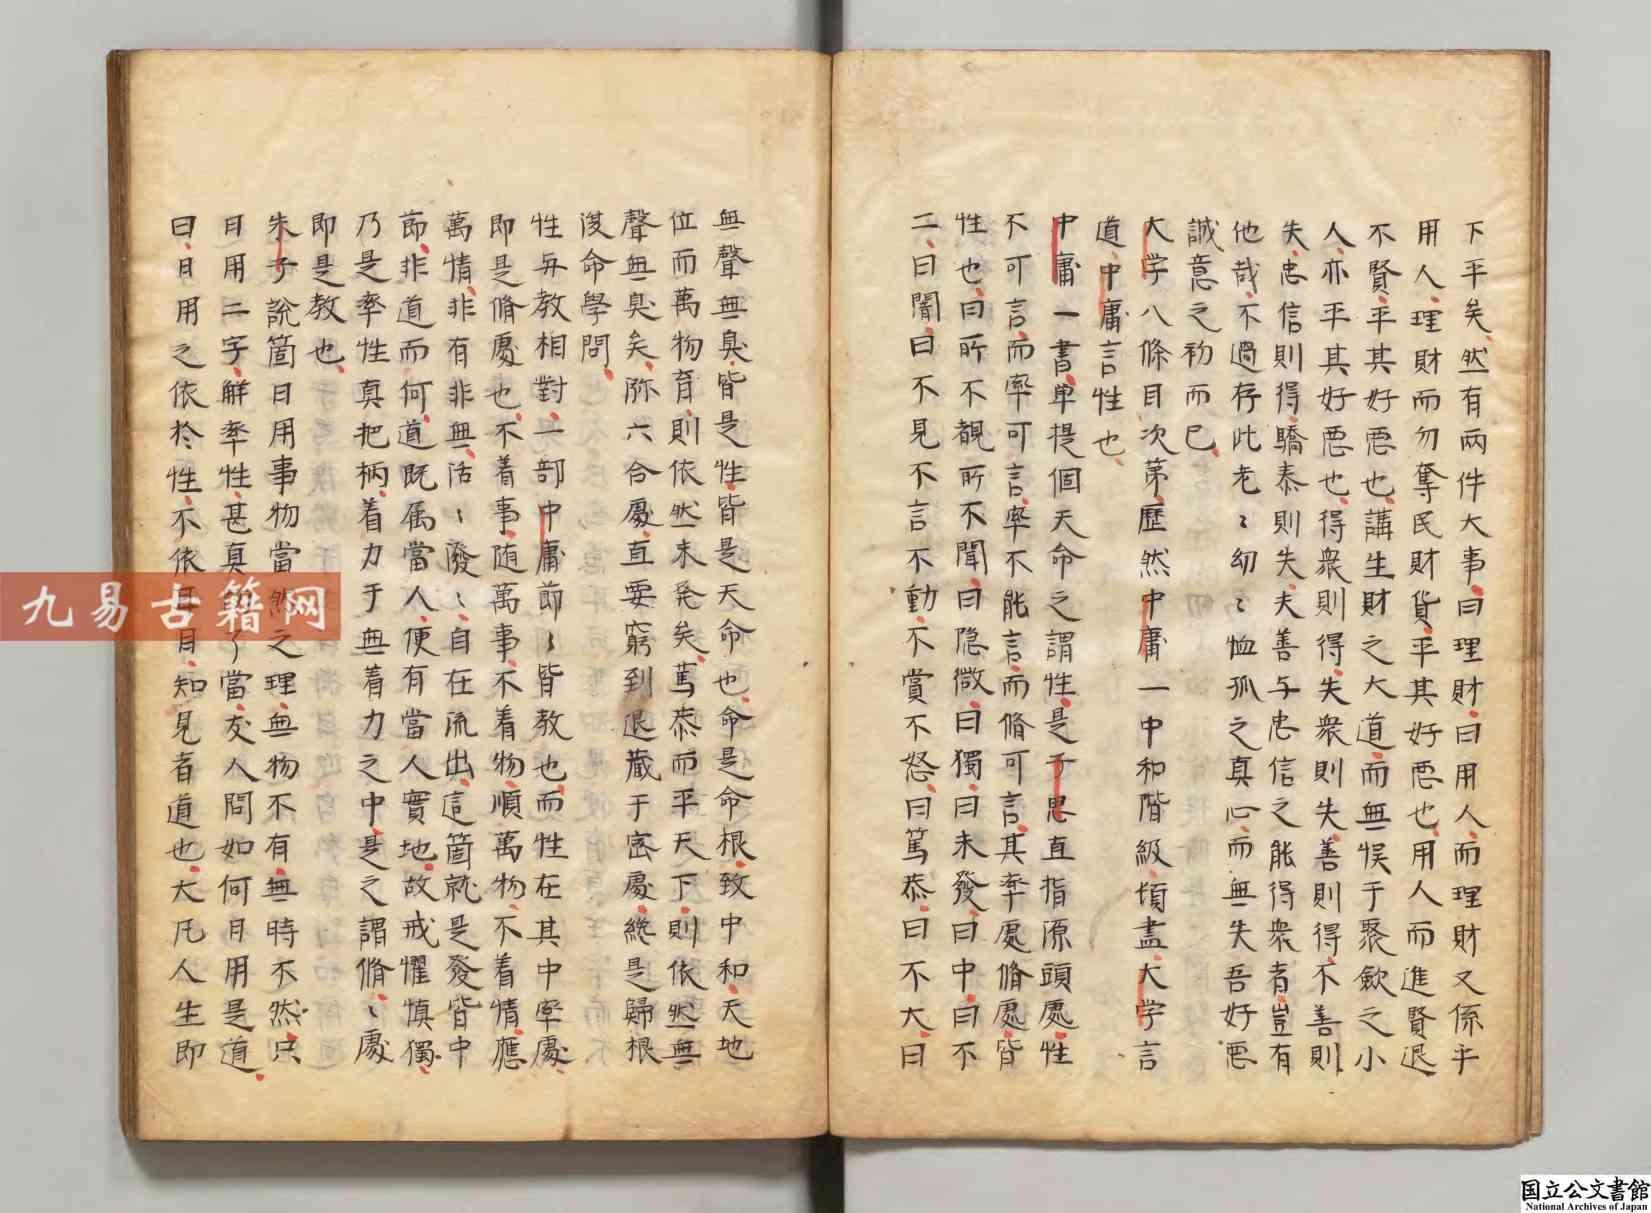 下平矣然有兩件大事曰理財曰用人而理財又係乎
用人理財而勿奪民財貨平其好惡也用人而進賢退
不賢平其好惡也講生財之大道而無悞于聚歛之小
人亦平其好惡也得衆則得失衆則失善則得不善則
失忠信則得驕泰則失夫善与忠信之能得衆者豈有
他哉不過存此老〻幼〻恤孤之真心而無失吾好惡
誠意之初而已
大学八條目次第歷然中庸一中和階級頓盡大学言
道中庸言性也
中庸一書单提個天命之謂性是子思直指源頭處性
不可言而率可言率不能言而脩可言其率處脩處皆
性也曰所不覩所不聞曰隐微曰獨曰未發曰中曰不
二曰闇曰不見不言不動不賞不怒曰篤恭曰不大曰
無聲無臭皆是性皆是天命也命是命根致中和天地
位而萬物育則依然未発矣篤恭而平天下則依然無
聲無臭矣弥六合處直要窮到退藏于密處纔是歸根
復命學問
性与教相對一部中庸節〻皆教也而性在其中率處
即是脩處也不着事随萬事不着物順萬物不着情應
萬情非有非無活〻潑〻自在流出這箇就是發皆中
節非道而何道既属當人便有當人實地故戒懼慎獨
乃是率性真把柄着力于無着力之中是之謂脩〻處
即是教也
朱子說箇日用事物當然之理無物不有無時不然只
日用二字解率性甚真的了當友人問如何日用是道
曰日用之依於性不依耳目知見者道也大凡人生即
九易古籍网
国立公文書館
National Archives of Japan